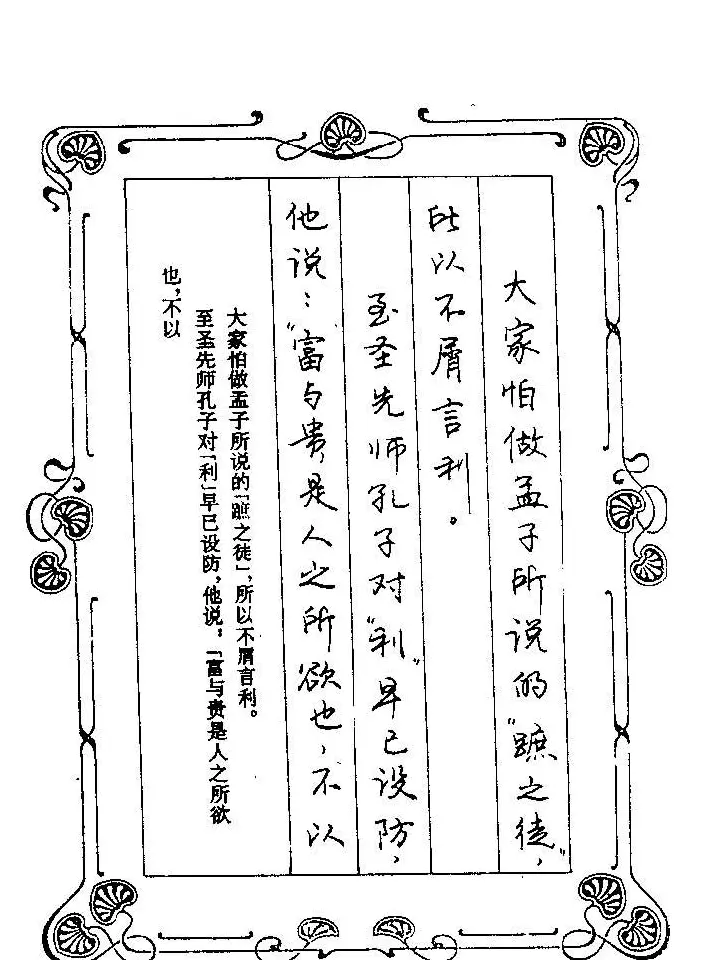 大家怕做孟子所说的"蹠之徒"，
所以不屑言利。
至圣先师孔子对"利"早已设防，
他说："富与贵，是人之所欲也，不以
大家怕做孟子所说的「蹠之徒」，所以不屑言利。
至圣先师孔子对「利」早已设防，他说：「富与贵是人之所欲
也，不以